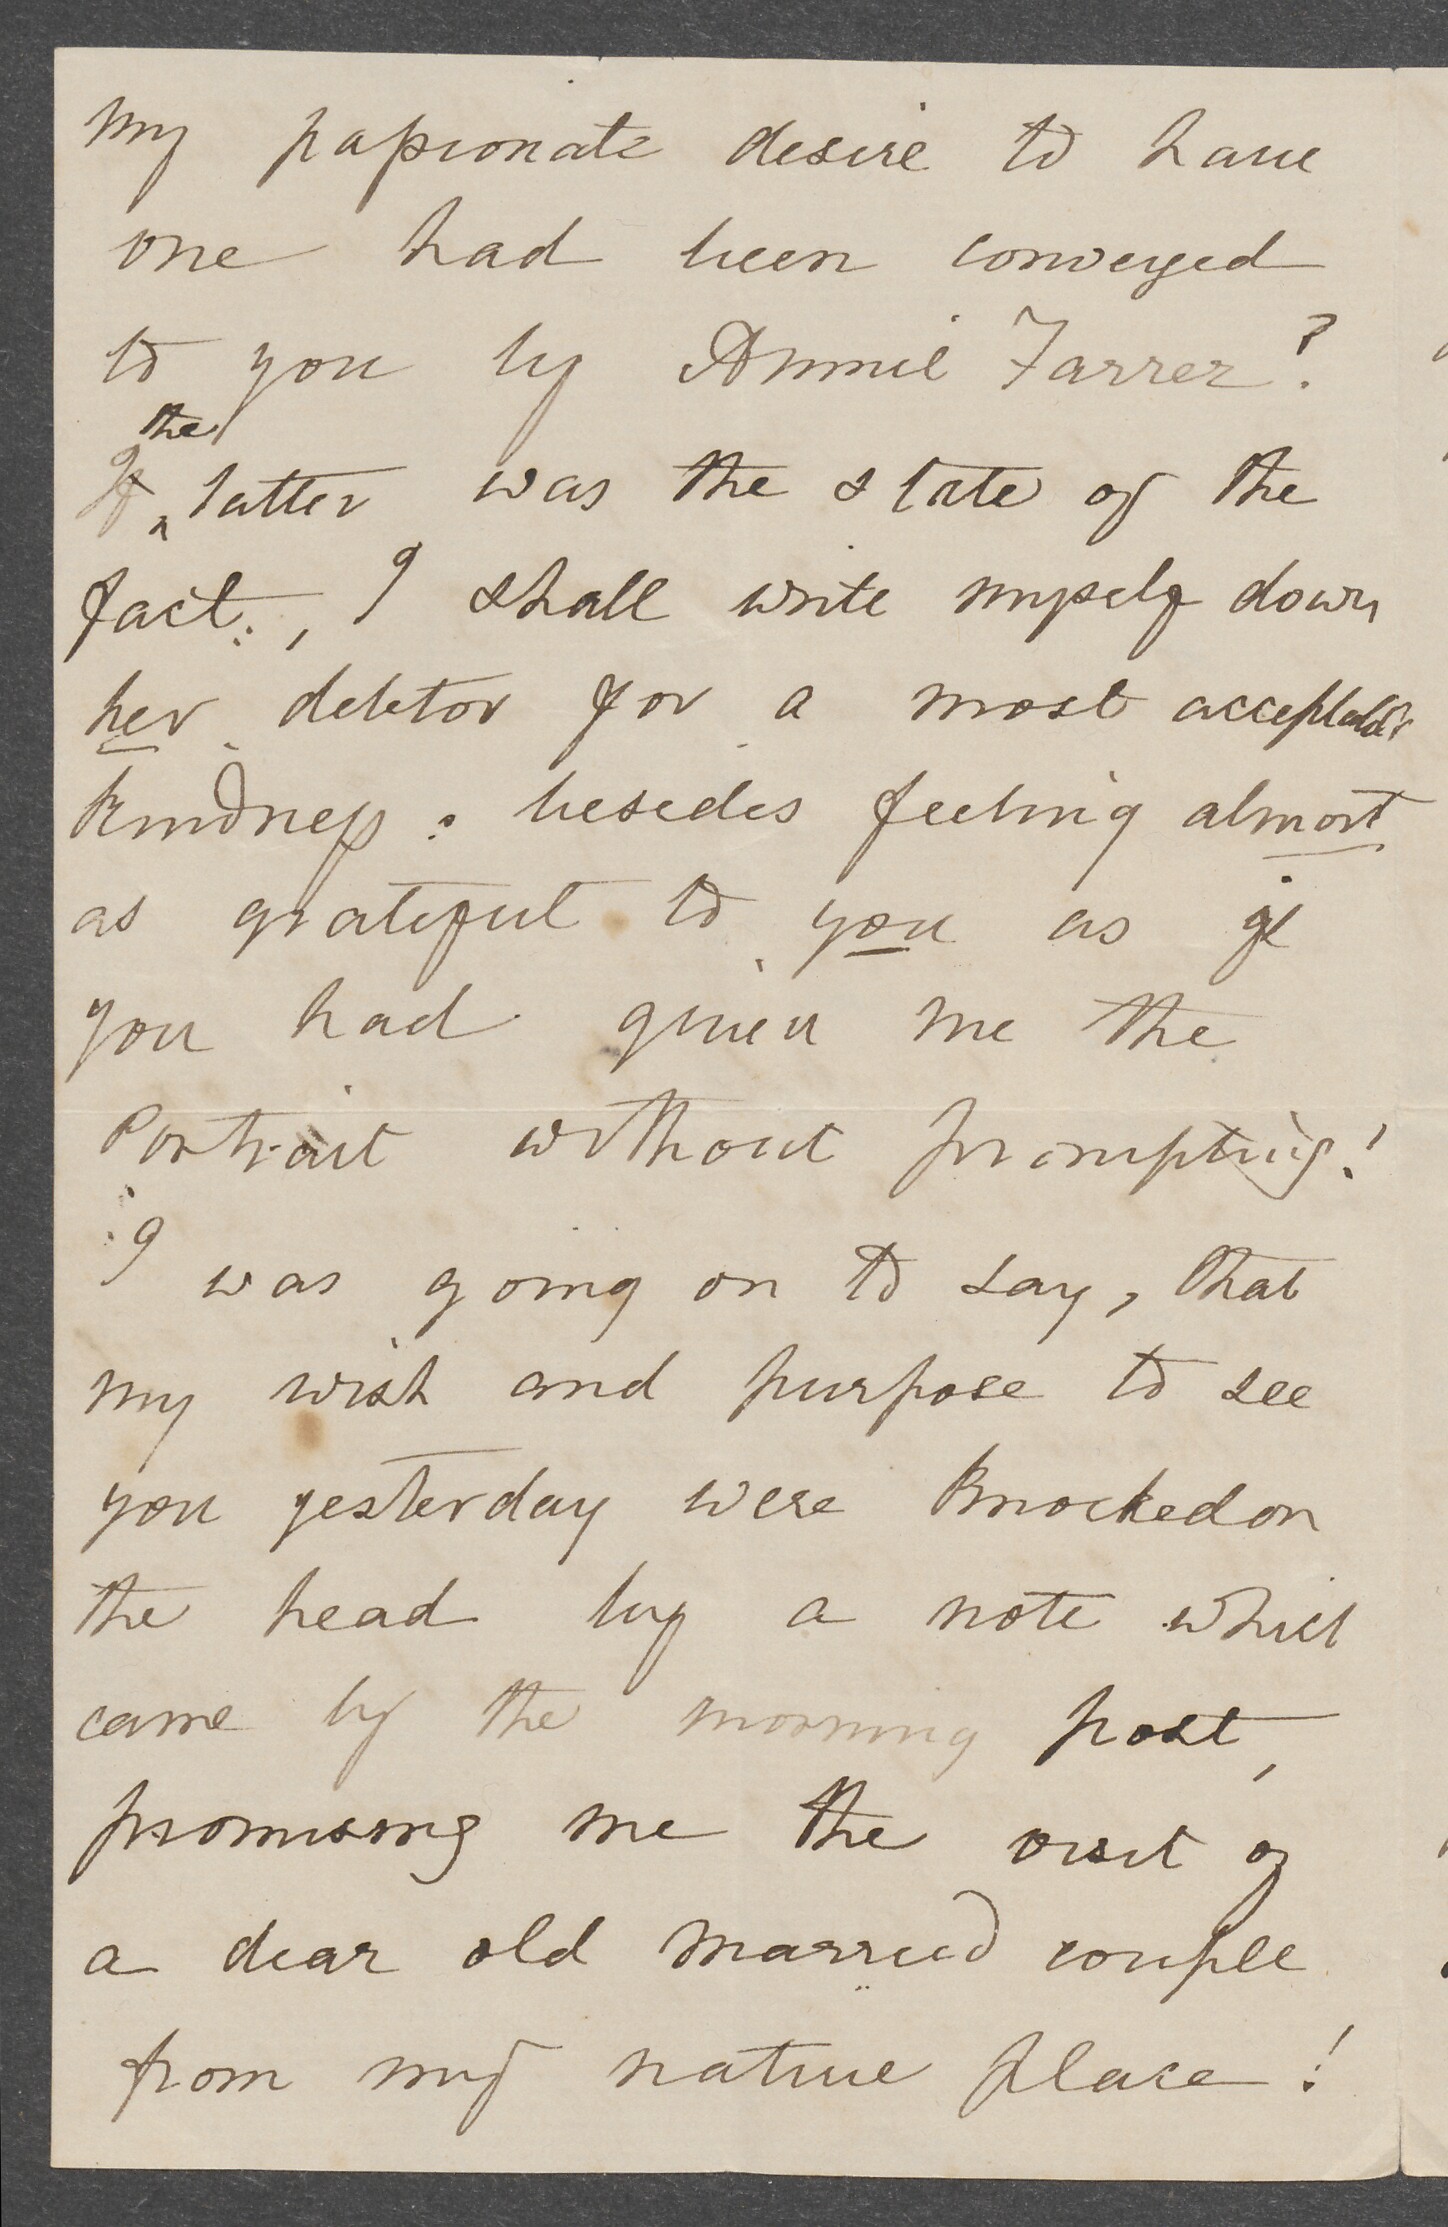 my passionate desire to have
one had been conveyed
to you by Annie Farrer?
If the latter was the state of the
fact, I shall write myself down
her debtor for a most acceptable
kindness: besides feeling almost
as grateful to you as if
you had given me the
Portrait without prompting!
I was going on to say, that
my wish and purpose to see
you yesterday were knocked on
the head by a note which
came by the morning post,
promising me the visit of
a dear old married couple
from my native place!